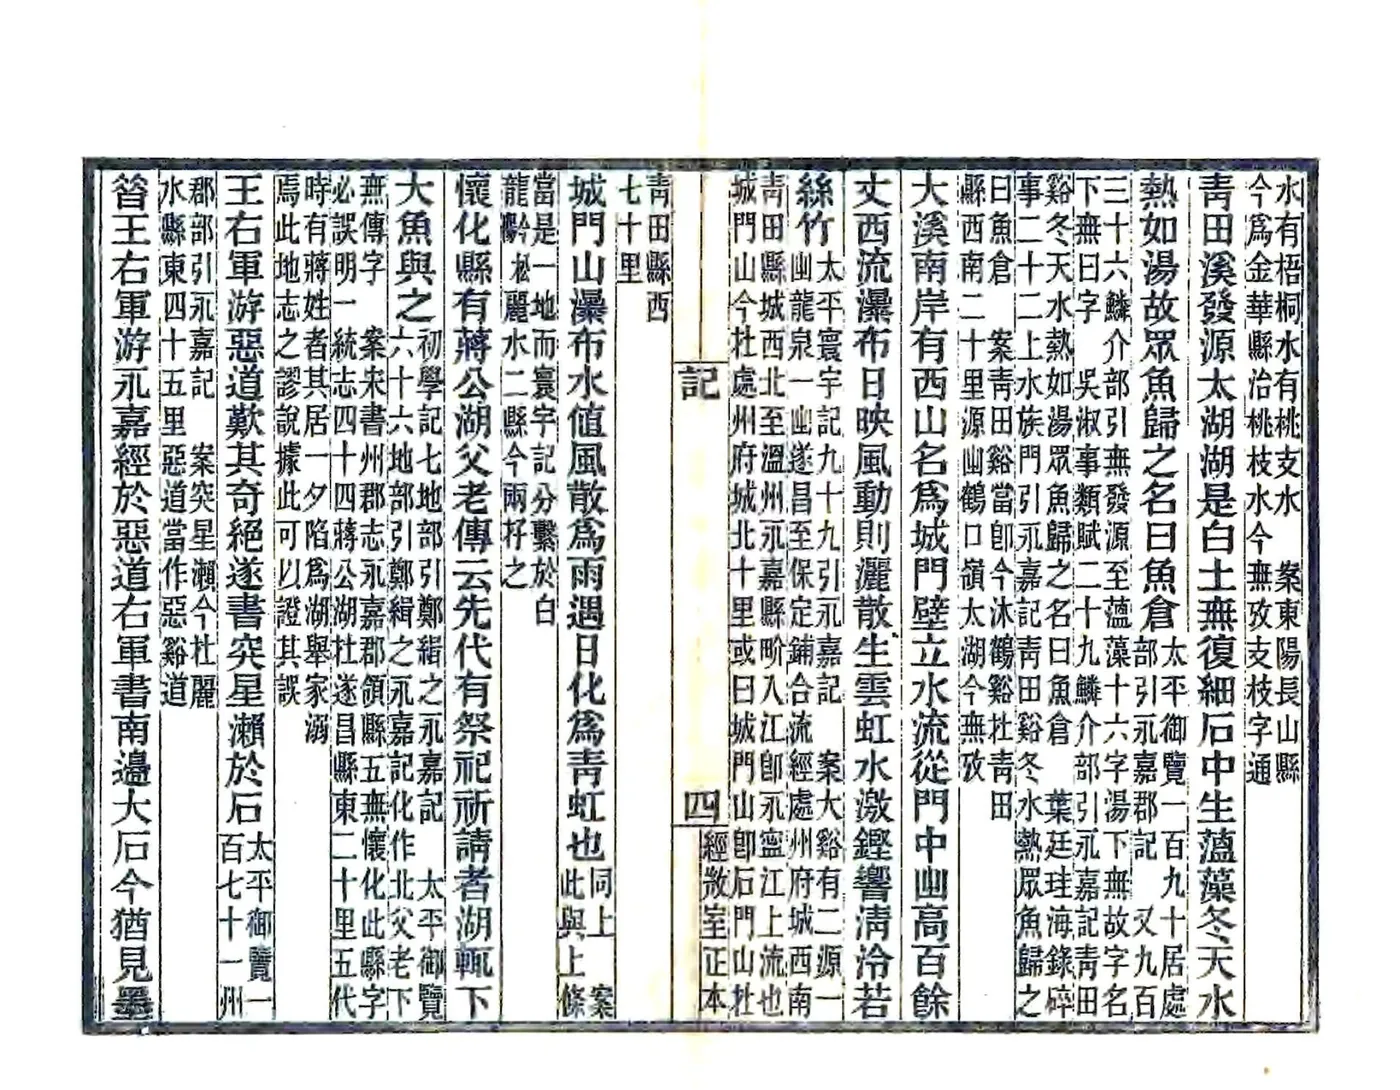 水有梧桐水有桃支水　案東陽長山縣
今爲金華縣治桃枝水今無攷支枝字通
青田溪發源太湖湖是白土無復細石中生薀藻冬天水
熱如湯故眾魚歸之名曰魚倉
太平御覽一百九十居處
部引永嘉郡記　又九百
三十六鱗介部引無發源至薀藻十六字湯下無故字名
下無曰字　吳淑事類賦二十九鱗介部引永嘉記青田
谿冬天水熱如湯眾魚歸之名曰魚倉　葉廷珪海錄碎
事二十二上水族門引永嘉記青田谿冬水熱眾魚歸之
曰魚倉　案青田谿當卽今沐鶴谿在青田
縣西南二十里源出鶴口嶺太湖今無攷
大溪南岸有西山名爲城門壁立水流從門中出高百餘
丈西流瀑布日映風動則灑散生雲虹水激鏗響清泠若
絲竹
太平寰宇記九十九引永嘉記　案大谿有二源一
出龍泉一出遂昌至保定鋪合流經處州府城西南
青田縣城西北至溫州永嘉縣畍入江卽永寧江上流也
城門山今在處州府城北十里或曰城門山卽石門山在
記
四
經㪚室正本
青田縣西
七十里
城門山瀑布水値風散爲雨遇日化爲青虹也
同上　案
此與上條
當是一地而寰宇記分繫於白
龍黅松麗水二縣今兩存之
懷化縣有蔣公湖父老傳云先代有祭祀祈請者湖輒下
大魚與之
初學記七地部引鄭緝之永嘉記　太平御覽
六十六地部引鄭緝之永嘉記化作北父老下
無傳字　案宋書州郡志永嘉郡領縣五無懷化此縣字
必誤明一統志四十四蔣公湖在遂昌縣東二十里五代
時有蔣姓者其居一夕陷爲湖舉家溺
焉此地志之謬說據此可以證其誤
王右軍游惡道歎其奇絕遂書突星瀨於石
太平御覽一
百七十一州
郡部引永嘉記　案突星瀨今在麗
水縣東四十五里惡道當作惡谿道
晉王右軍游永嘉經於惡道右軍書南邊大石今猶見墨